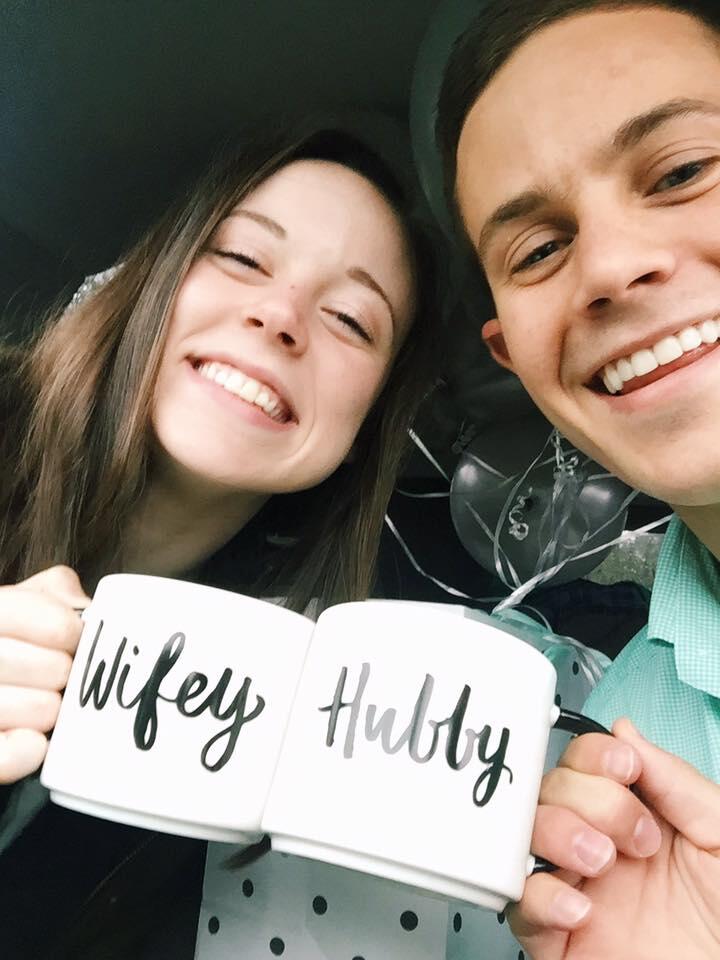 Wifey
Hubby